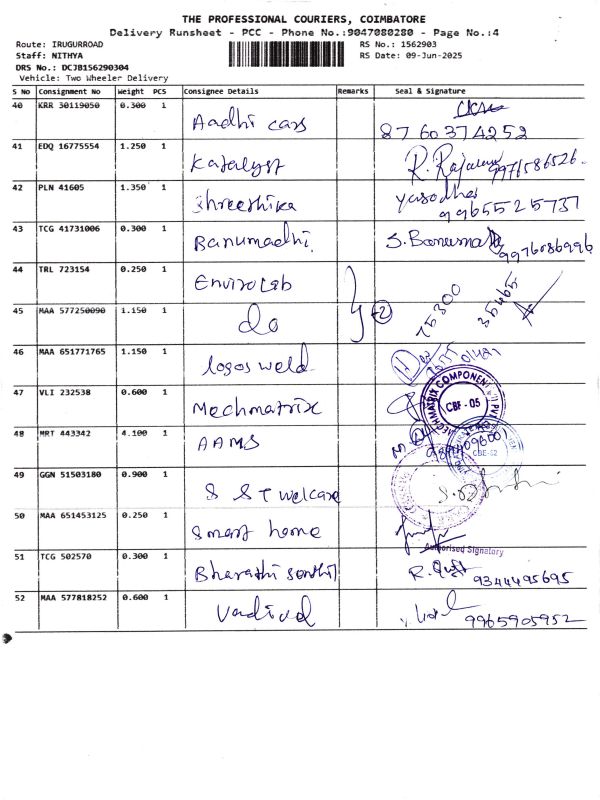 THE PROFESSIONAL COURIERS, COIMBATORE
Delivery Runsheet - PCC - Phone No.:9047080280 - Page No.:4
Route: IRUGURROAD RS No.: 1562903
Staff: NITHYA RS Date: 09-Jun-2025
DRS No.: DCJB156290304
Vehicle: Two Wheeler Delivery
S No Consignment No Weight PCS Consignee Details Remarks Seal & Signature
40 KRR 30119050 0.300 1 Aadhi cars 8760374252
41 EDQ 16775554 1.250 1 Katalyst R. 9976586526
42 PLN 41605 1.350 1 Shreeshika yasodha 9965525737
43 TCG 41731006 0.300 1 Banumadhi S. Banumathi 9976086996
44 TRL 723154 0.250 1 Envirolab
45 MAA 577250090 1.150 1 do +2 75300 35465
46 MAA 651771765 1.150 1 logos weld
47 VLI 232538 0.600 1 Mechmatrix MECHMATRIX COMPONENT CBF - 05
48 MRT 443342 4.100 1 AAMS CBE-62
49 GGN 51503180 0.900 1 S S T welcare
50 MAA 651453125 0.250 1 Smart home
Authorised Signatory
51 TCG 502570 0.300 1 Bharathi senthil R. 9344495695
52 MAA 577818252 0.600 1 Vadivel 9965905952